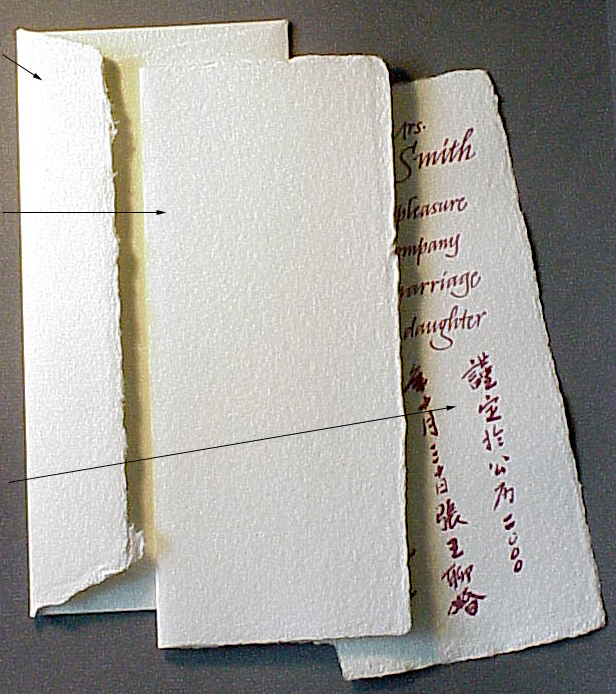 Mrs.
Smith
pleasure
ompany
arriage
daughter
謹定於公历二000
年十月三十日張王聯婚